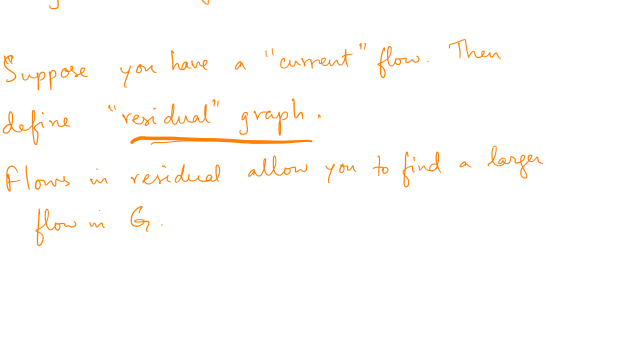 Suppose you have a "current" flow. Then
define "residual" graph.
Flows in residual allow you to find a larger
flow in G.